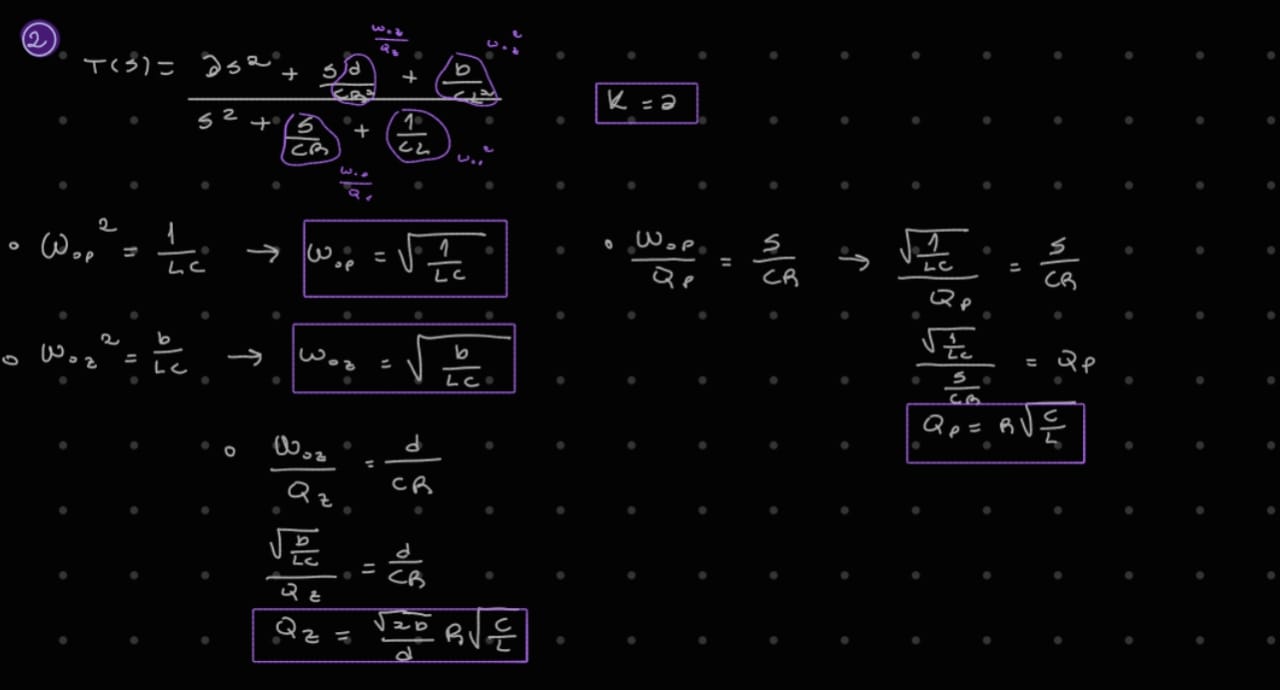 2
T(s) = (as² + s d/CR² + b/CL²) / (s² + s/CR + 1/CL)
ωoz/Qz
ωoz²
ωop/Qp
ωop²
K = a
• ωop² = 1/LC → ωop = √(1/LC)
• ωoz² = b/LC → ωoz = √(b/LC)
• ωoz/Qz = d/CR
√(b/LC)/Qz = d/CR
Qz = √(ab)/d R√(C/L)
• ωop/Qp = s/CR → √(1/LC)/Qp = s/CR
√(1/LC)/(s/CR) = Qp
Qp = R√(C/L)